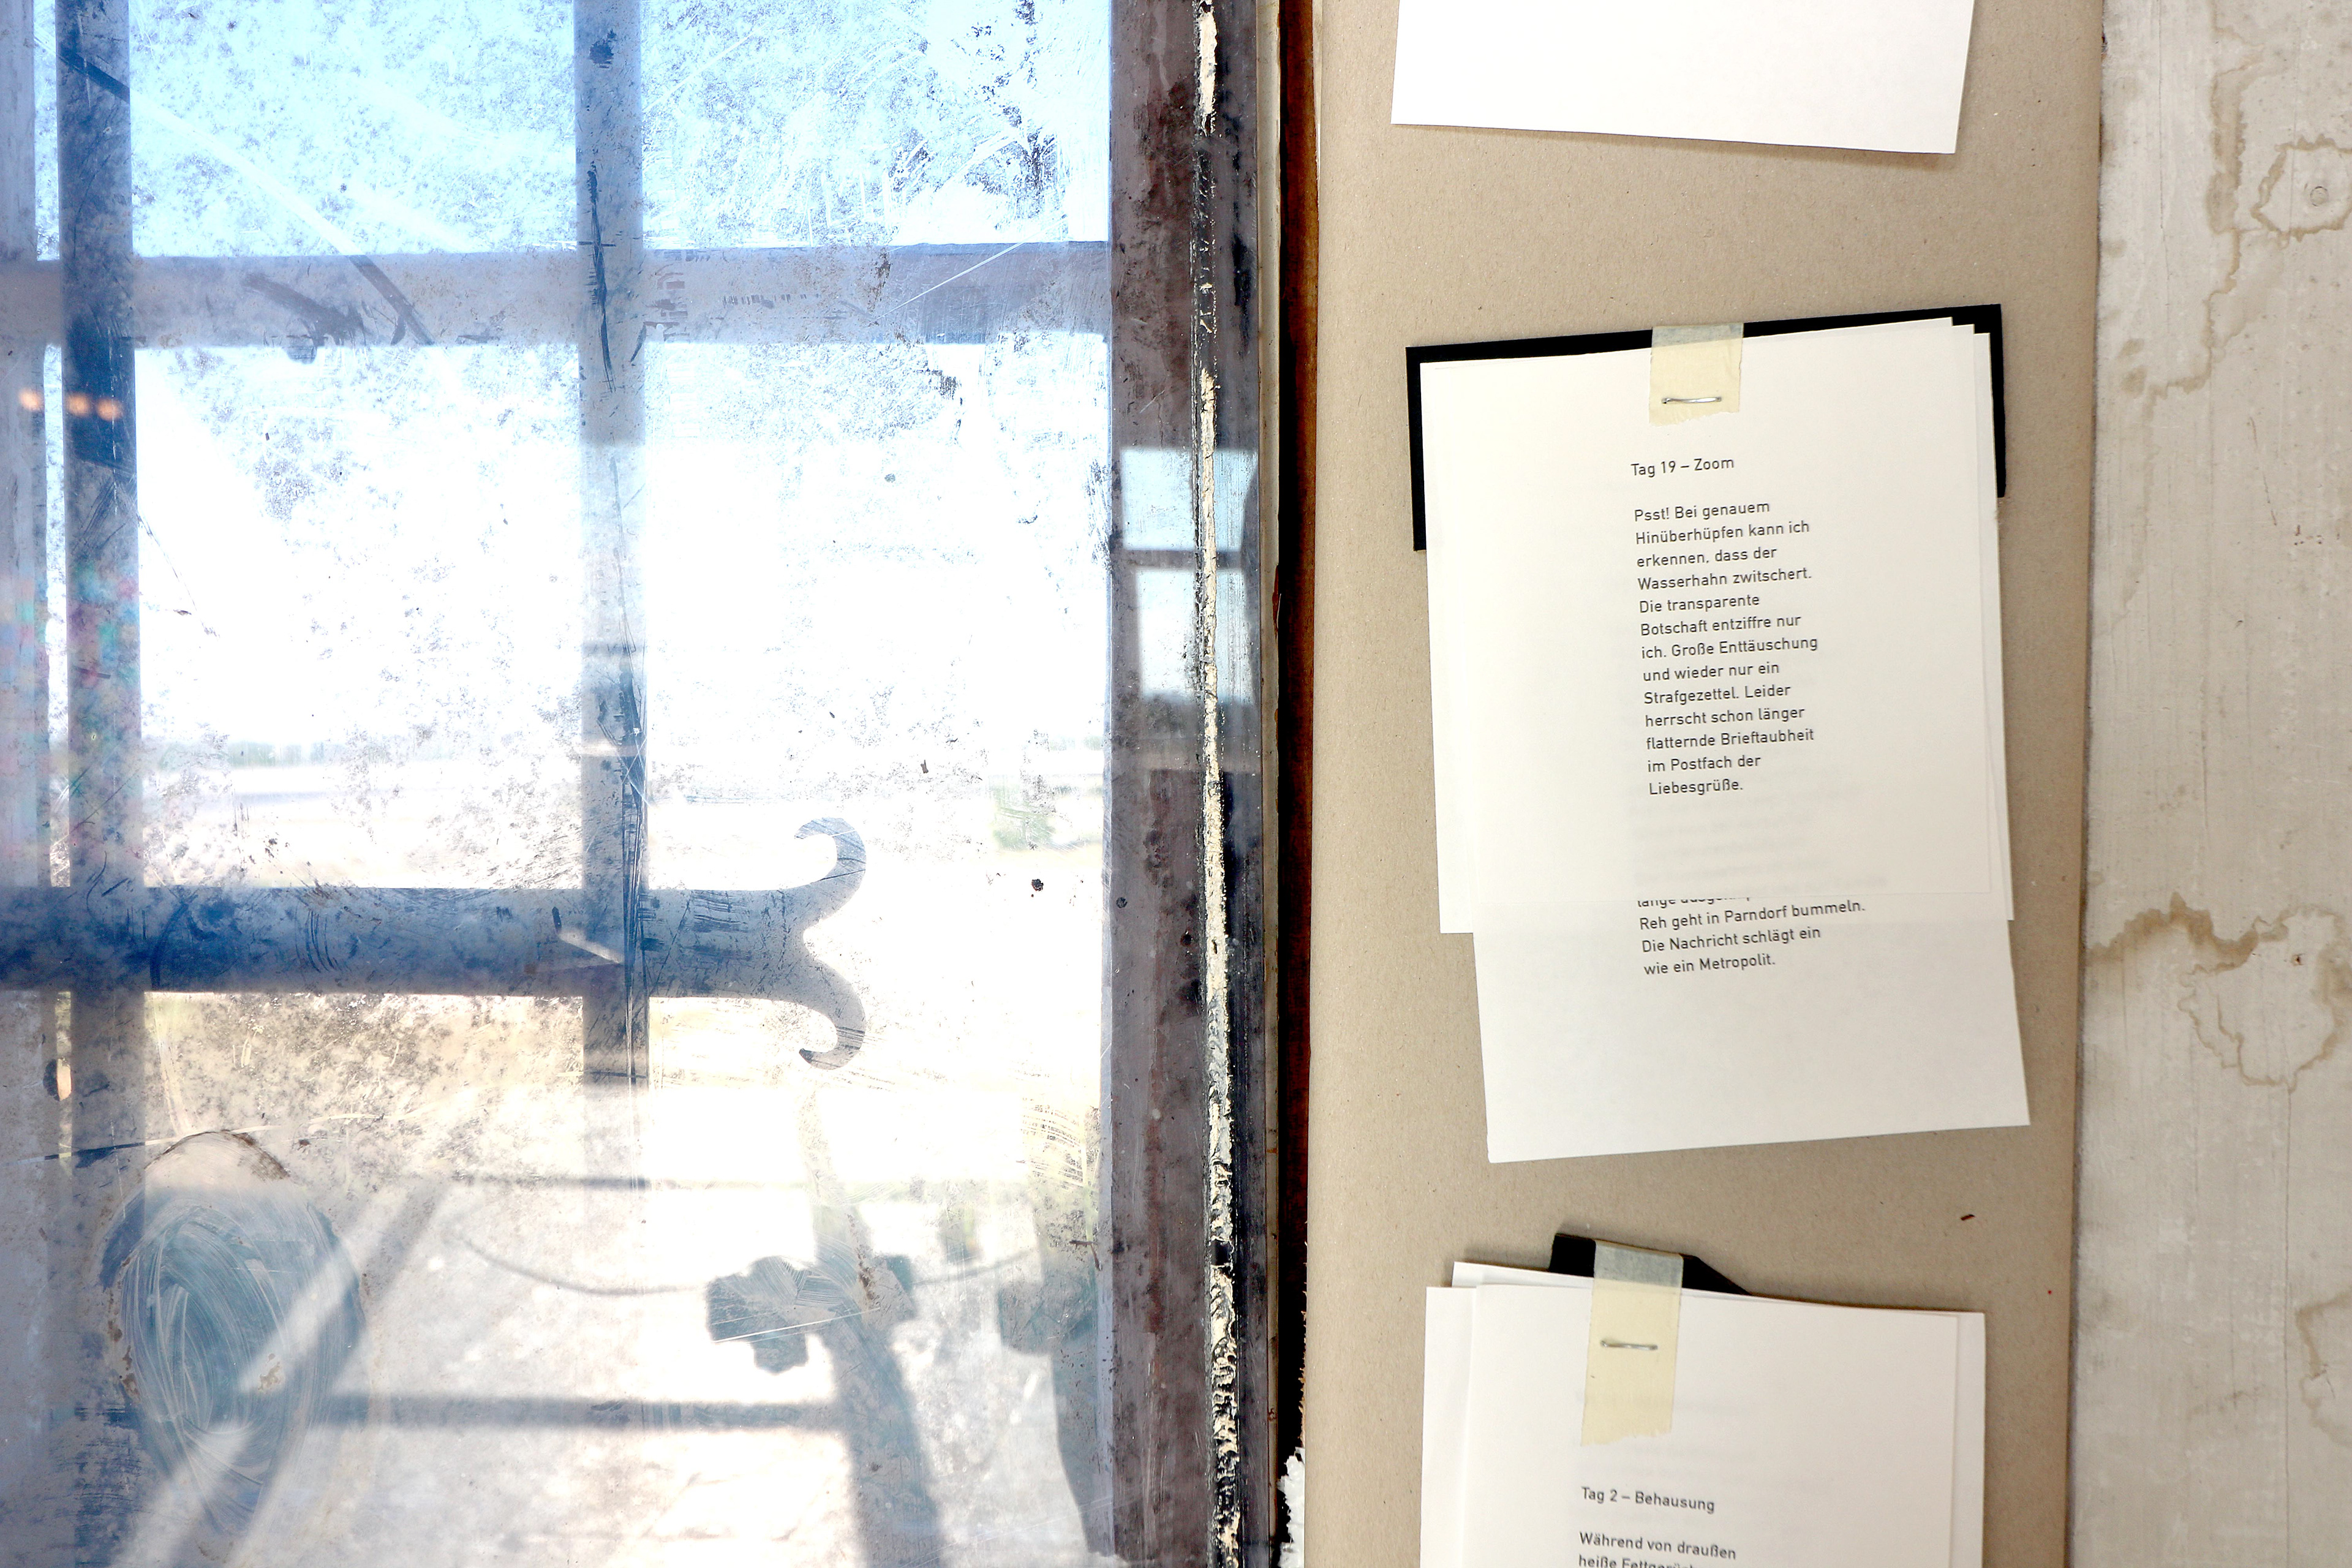 Tag 19 – Zoom
Psst! Bei genauem
Hinüberhüpfen kann ich
erkennen, dass der
Wasserhahn zwitschert.
Die transparente
Botschaft entziffre nur
ich. Große Enttäuschung
und wieder nur ein
Strafgezettel. Leider
herrscht schon länger
flatternde Brieftaubheit
im Postfach der
Liebesgrüße.
lange
Reh geht in Parndorf bummeln.
Die Nachricht schlägt ein
wie ein Metropolit.
Tag 2 – Behausung
Während von draußen
heiße